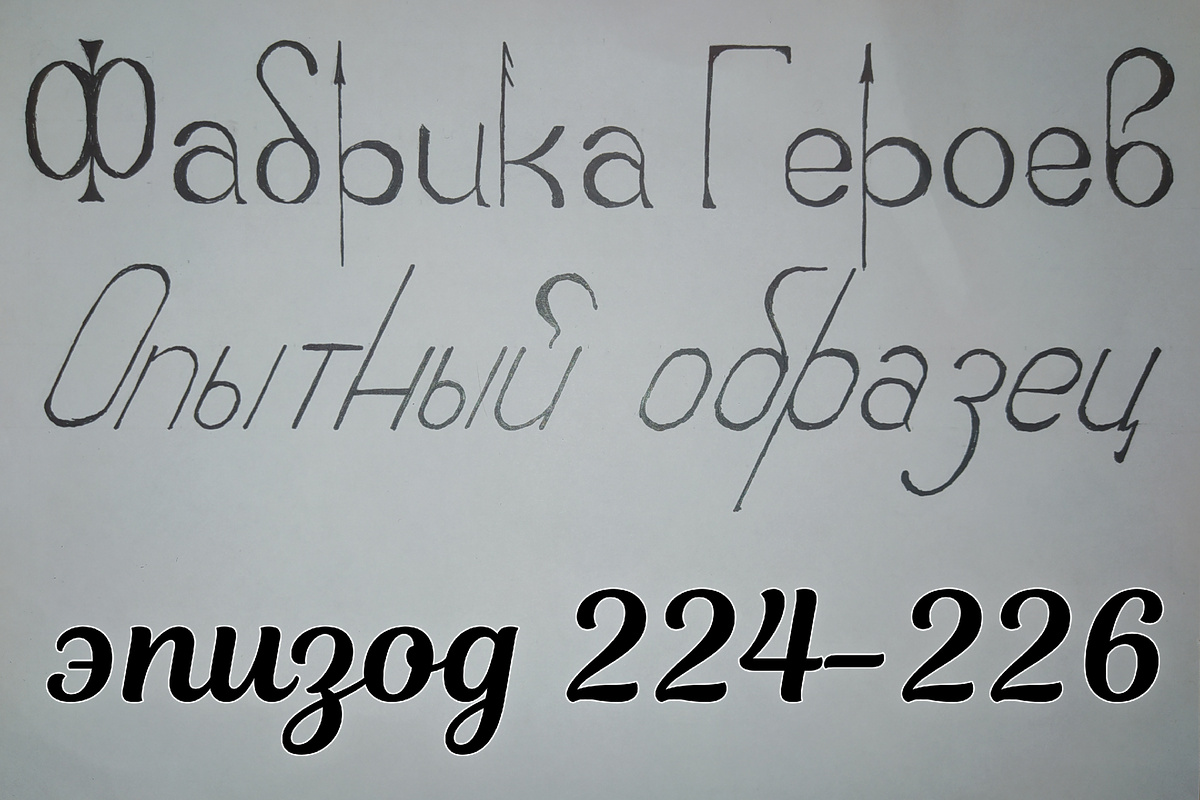 Фабрика Героев
Опытный образец
эпизод 224-226